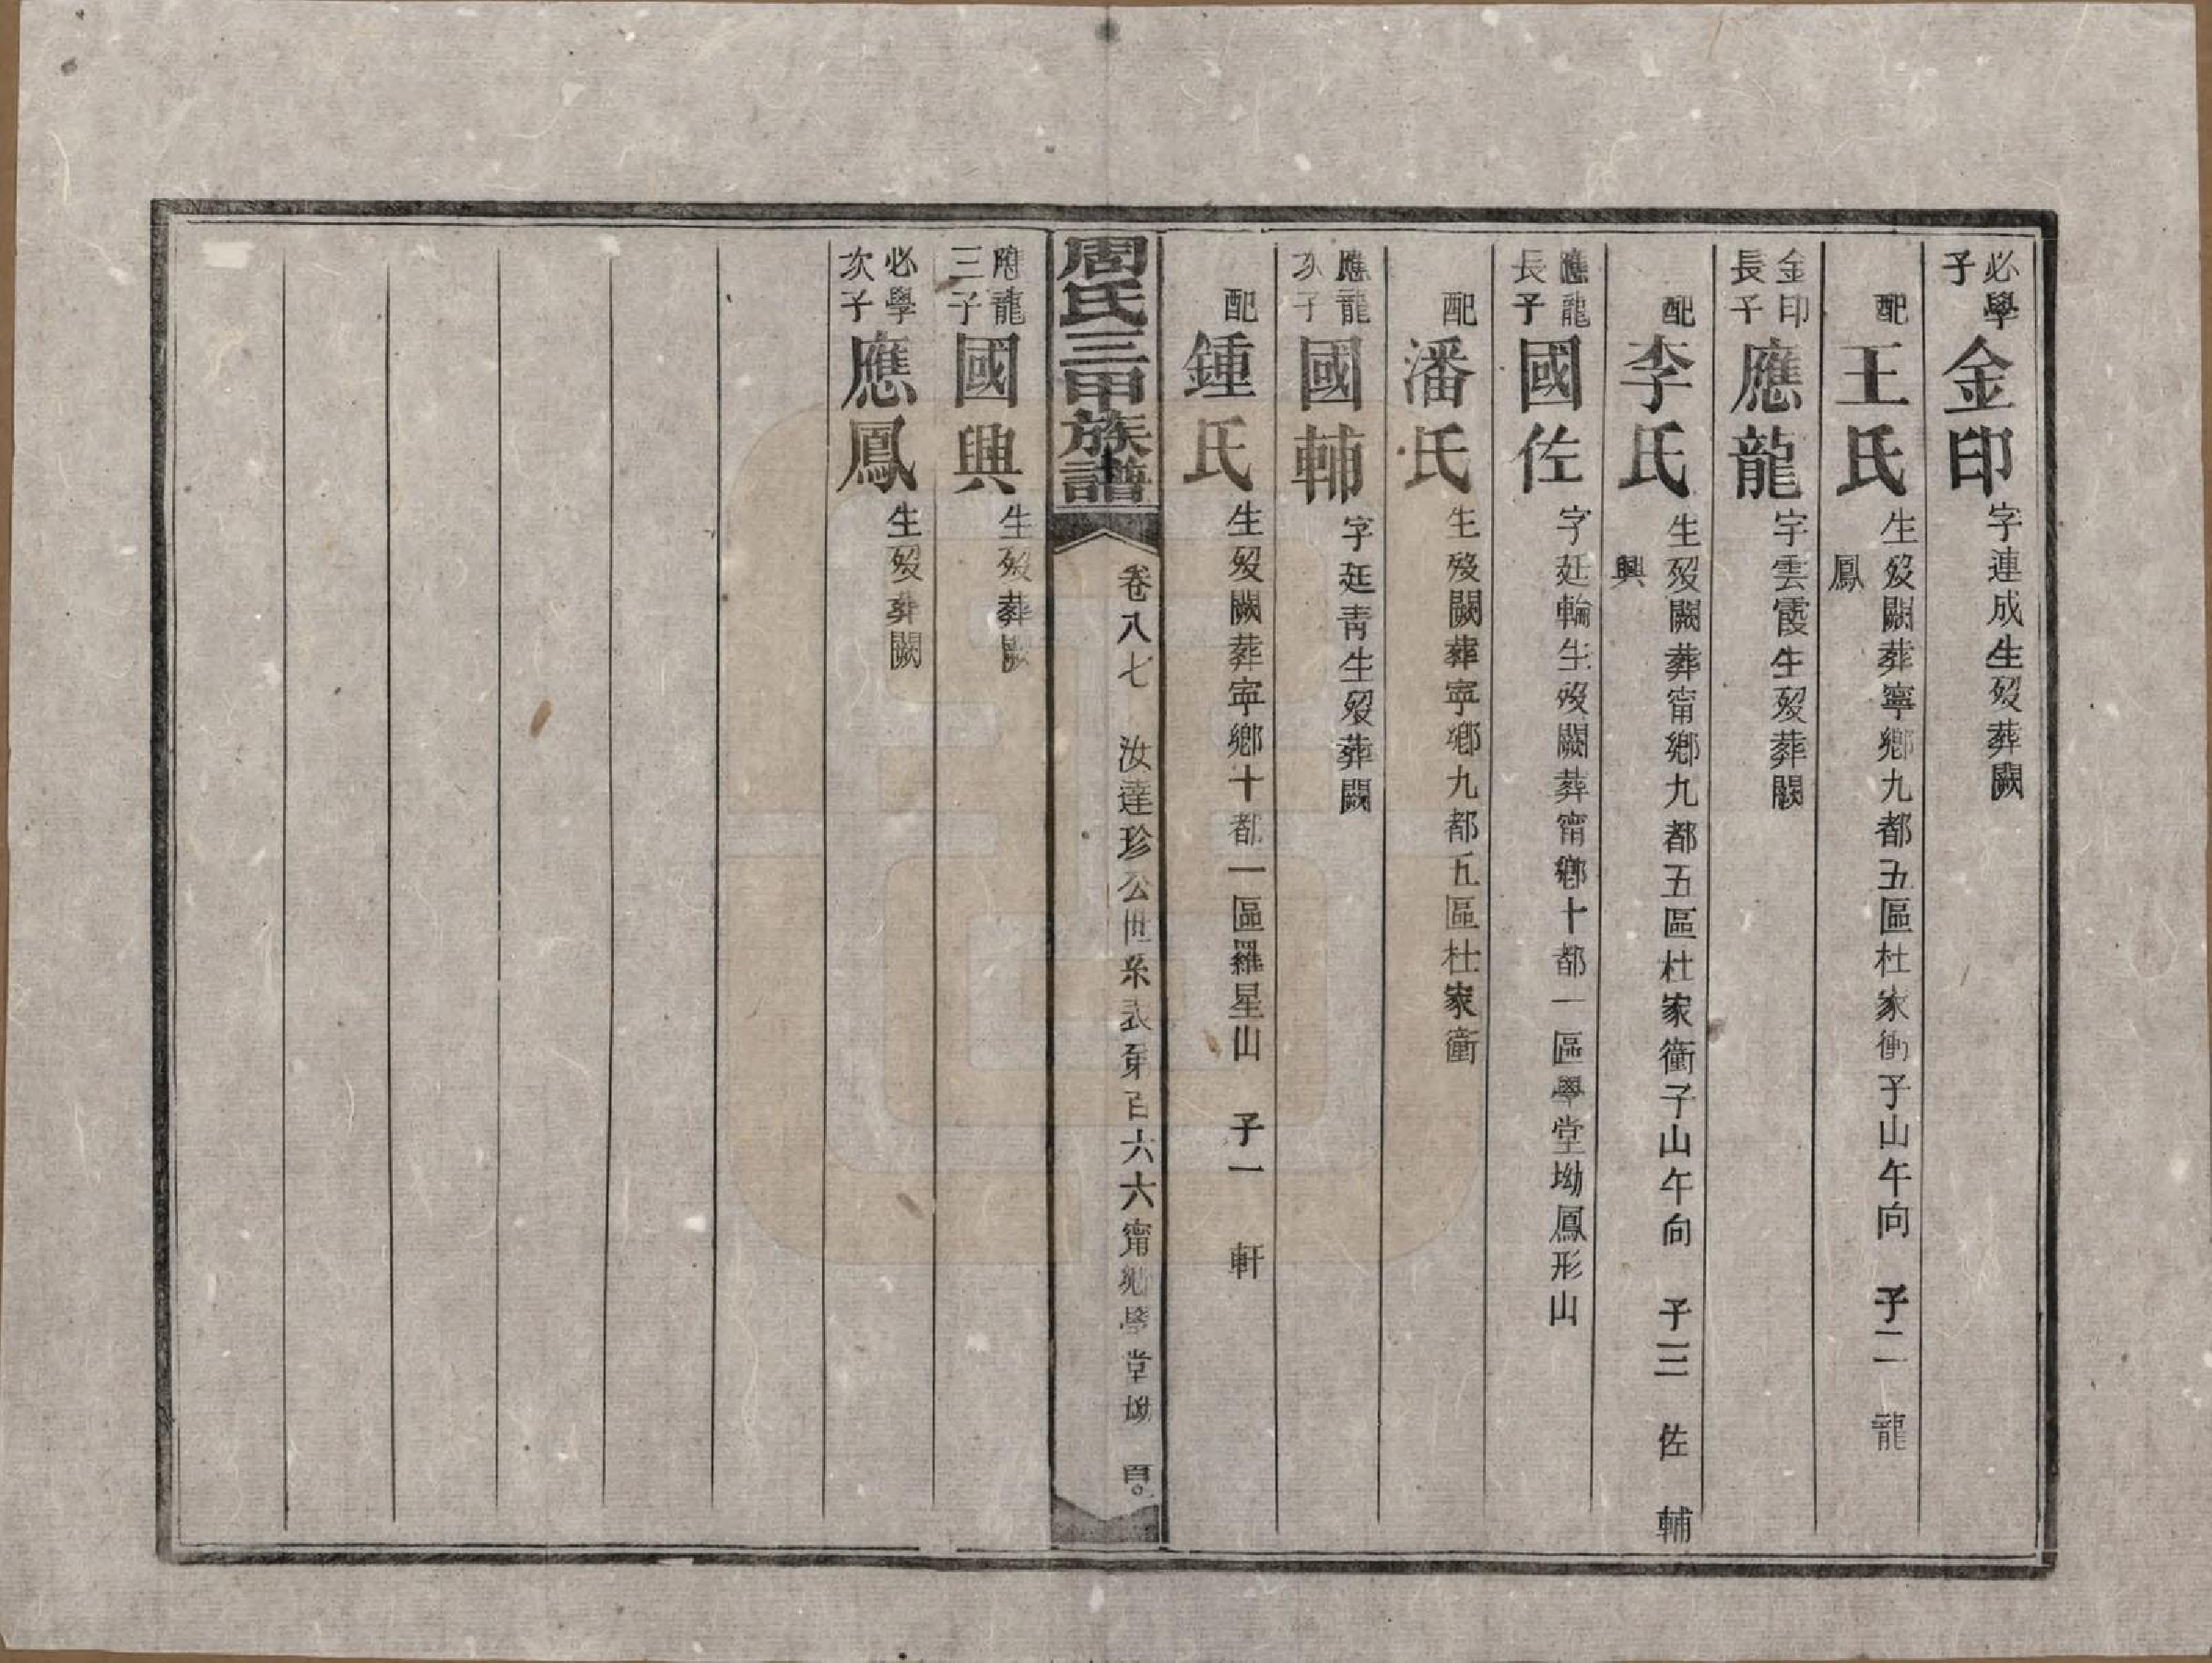 必學子 金印 字連成生歿葬闕
配 王氏 生歿闕葬寧鄉九都五區杜家衝子山午向 子二 龍
鳳
金印長子 應龍 字雲霞生歿葬闕
配 李氏 生歿闕葬甯鄉九都五區杜家衝子山午向 子三 佐 輔
興
應龍長子 國佐 字廷輪生歿闕葬甯鄉十都一區學堂坳鳳形山
配 潘氏 生歿闕葬寧鄉九都五區杜家衝
應龍次子 國輔 字廷青生歿葬闕
配 鍾氏 生歿闕葬寧鄉十都一區羅星山 子一 軒
周氏三甲族譜 卷八七 汝達珍公世系表第百六六甯鄉學堂坳
應龍三子 國興 生歿葬闕
必學次子 應鳳 生歿葬闕